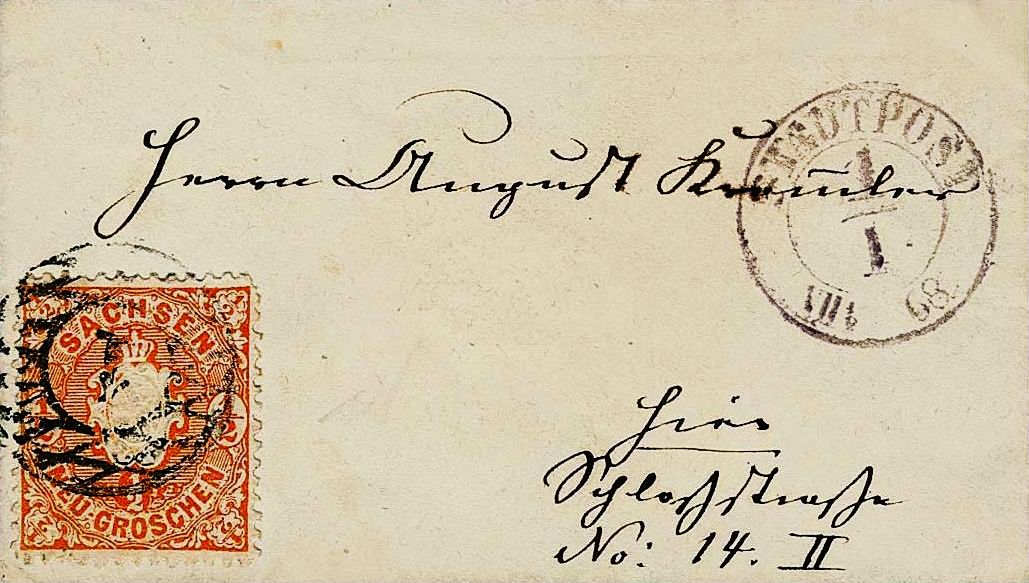 Herrn August
STADTPOST
1
1
VIII 68
SACHSEN
½
NEU-GROSCHEN
Hier
Schloßstraße
No: 14. II